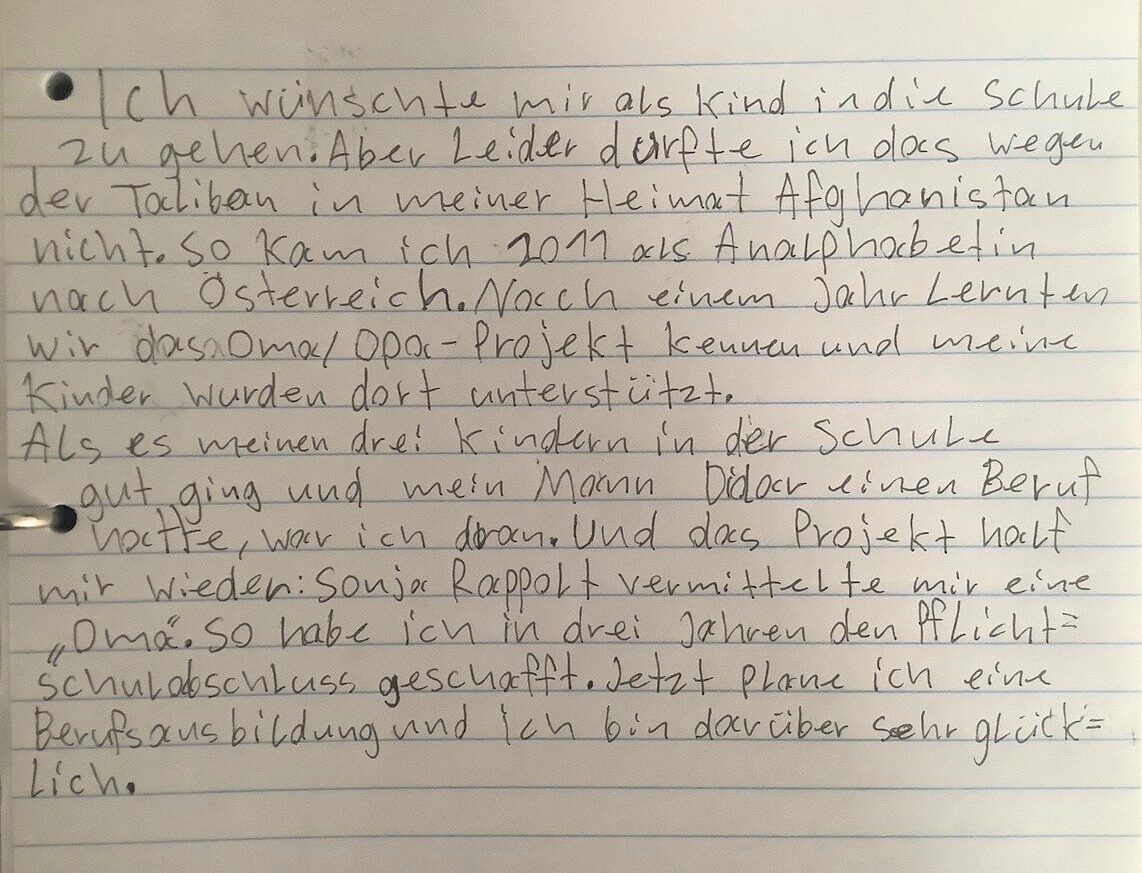 Ich wünschte mir als Kind in die Schule
zu gehen. Aber Leider durfte ich das wegen
der Taliban in meiner Heimat Afghanistan
nicht. So kam ich 2011 als Analphabetin
nach Österreich. Nach einem Jahr Lernten
wir das Oma/Opa-Projekt kennen und meine
Kinder wurden dort unterstützt.
Als es meinen drei Kindern in der Schule
gut ging und mein Mann Didar einen Beruf
hatte, war ich dran. Und das Projekt half
mir wieder: Sonja Rappolt vermittelte mir eine
„Oma“. So habe ich in drei Jahren den Pflicht=
schulabschluss geschafft. Jetzt plane ich eine
Berufsausbildung und ich bin darüber sehr glück=
lich.